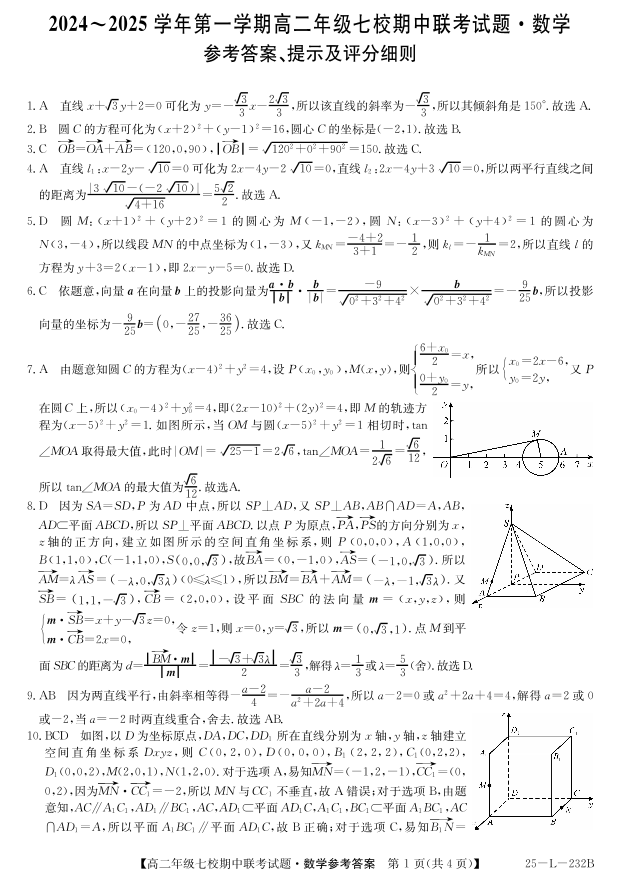 2024～2025 学年第一学期高二年级七校期中联考试题·数学
参考答案、提示及评分细则
1. A 直线 x+√3y+2=0 可化为 y=-√3/3 x-2√3/3,所以该直线的斜率为-√3/3,所以其倾斜角是 150°. 故选 A.
2. B 圆 C 的方程可化为(x+2)²+(y-1)²=16,圆心 C 的坐标是(-2,1). 故选 B.
3. C OB→=OA→+AB→=(120,0,90),|OB→|=√(120²+0²+90²)=150. 故选 C.
4. A 直线 l₁:x-2y-√10=0 可化为 2x-4y-2√10=0,直线 l₂:2x-4y+3√10=0,所以两平行直线之间
的距离为|3√10-(-2√10)|/√(4+16)=5√2/2. 故选 A.
5. D 圆 M:(x+1)²+(y+2)²=1 的圆心为 M(-1,-2),圆 N:(x-3)²+(y+4)²=1 的圆心为
N(3,-4),所以线段 MN 的中点坐标为(1,-3),又 k_MN=(-4+2)/(3+1)=-1/2,则 k_l=-1/k_MN=2,所以直线 l 的
方程为 y+3=2(x-1),即 2x-y-5=0. 故选 D.
6. C 依题意,向量 a 在向量 b 上的投影向量为a·b/|b|·b/|b|=-9/√(0²+3²+4²)×b/√(0²+3²+4²)=-9/25 b,所以投影
向量的坐标为-9/25 b=(0,-27/25,-36/25). 故选 C.
7. A 由题意知圆 C 的方程为(x-4)²+y²=4,设 P(x₀,y₀),M(x,y),则{(6+x₀)/2=x,(0+y₀)/2=y, 所以{x₀=2x-6,y₀=2y, 又 P
在圆 C 上,所以(x₀-4)²+y₀²=4,即(2x-10)²+(2y)²=4,即 M 的轨迹方
程为(x-5)²+y²=1. 如图所示,当 OM 与圆(x-5)²+y²=1 相切时,tan
∠MOA 取得最大值,此时|OM|=√(25-1)=2√6,tan∠MOA=1/(2√6)=√6/12,
所以 tan∠MOA 的最大值为√6/12. 故选 A.
y
2
1
M
A
O 1 2 3 4 5 6 7 x
8. D 因为 SA=SD,P 为 AD 中点,所以 SP⊥AD,又 SP⊥AB,AB∩AD=A,AB,
AD⊂平面 ABCD,所以 SP⊥平面 ABCD. 以点 P 为原点,PA→,PS→的方向分别为 x,
z 轴的正方向,建立如图所示的空间直角坐标系,则 P(0,0,0),A(1,0,0),
B(1,1,0),C(-1,1,0),S(0,0,√3),故BA→=(0,-1,0),AS→=(-1,0,√3). 所以
AM→=λAS→=(-λ,0,√3λ)(0≤λ≤1),所以BM→=BA→+AM→=(-λ,-1,√3λ). 又
SB→=(1,1,-√3),CB→=(2,0,0),设平面 SBC 的法向量 m=(x,y,z),则
{m·SB→=x+y-√3z=0,m·CB→=2x=0, 令 z=1,则 x=0,y=√3,所以 m=(0,√3,1). 点 M 到平
面 SBC 的距离为 d=|BM→·m|/|m|=|-√3+√3λ|/2=√3/3,解得 λ=1/3 或 λ=5/3(舍). 故选 D.
z
S
D
C
M
P
y
A
B
x
9. AB 因为两直线平行,由斜率相等得-(a-2)/4=-(a-2)/(a²+2a+4),所以 a-2=0 或 a²+2a+4=4,解得 a=2 或 0
或-2,当 a=-2 时两直线重合,舍去. 故选 AB.
10. BCD 如图,以 D 为坐标原点,DA,DC,DD₁ 所在直线分别为 x 轴,y 轴,z 轴建立
空间直角坐标系 Dxyz,则 C(0,2,0),D(0,0,0),B₁(2,2,2),C₁(0,2,2),
D₁(0,0,2),M(2,0,1),N(1,2,0). 对于选项 A,易知MN→=(-1,2,-1),CC₁→=(0,
0,2),因为MN→·CC₁→=-2,所以 MN 与 CC₁ 不垂直,故 A 错误;对于选项 B,由题
意知,AC∥A₁C₁,AD₁∥BC₁,AC,AD₁⊂平面 AD₁C,A₁C₁,BC₁⊂平面 A₁BC₁,AC
∩AD₁=A,所以平面 A₁BC₁∥平面 AD₁C,故 B 正确;对于选项 C,易知B₁N→=
z
D₁
C₁
A₁
B₁
M
D
C
y
N
A
B
x
【高二年级七校期中联考试题·数学参考答案 第 1 页(共 4 页)】 25-L-232B